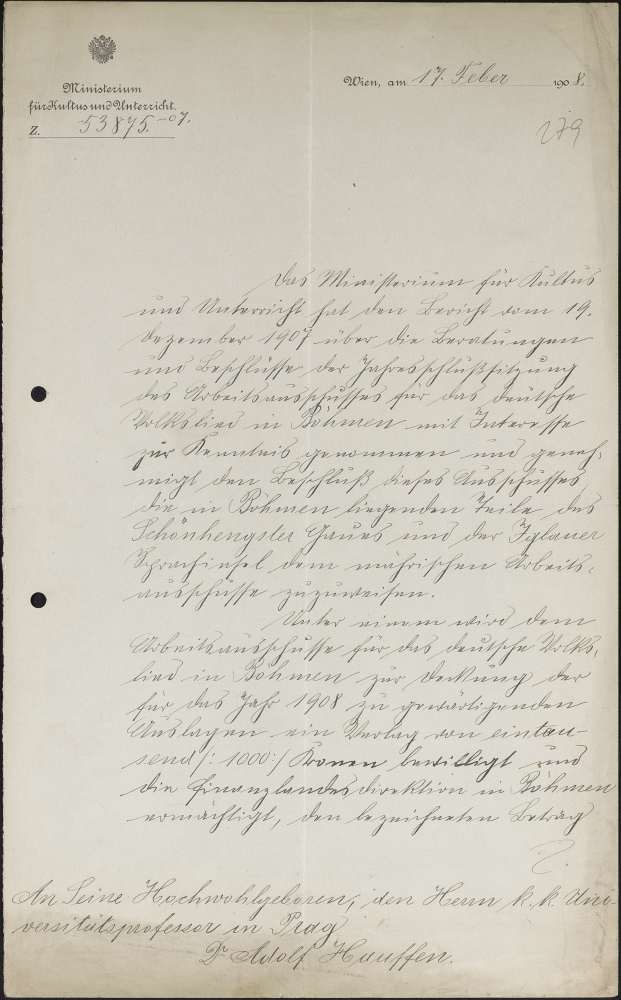 Ministerium
für Kultus und Unterricht.
Z. 53875.-07.
Wien, am 17. Feber 1908.
279
Das Ministerium für Kultus
und Unterricht hat den Bericht vom 19.
Dezember 1907 über die Beratungen
und Beschlüsse der Jahresschlußsitzung
des Arbeitsausschusses für das deutsche
Volkslied in Böhmen mit Interesse
zur Kenntnis genommen und geneh-
migt den Beschluß dieses Ausschusses,
die in Böhmen liegenden Teile des
Schönhengster Gaues und der Iglauer
Sprachinsel dem mährischen Arbeits-
ausschusse zuzuweisen.
Unter einem wird dem
Arbeitsausschusse für das deutsche Volks-
lied in Böhmen zur Deckung der
für das Jahr 1908 zu gewärtigenden
Auslagen ein Verlag von eintau-
send /: 1000:/ Kronen bewilligt und
die Finanzlandesdirektion in Böhmen
ermächtigt, den bezeichneten Betrag
An Seine Hochwohlgeboren, den Herrn k. k. Uni-
versitätsprofessor in Prag
Dr Adolf Hauffen.